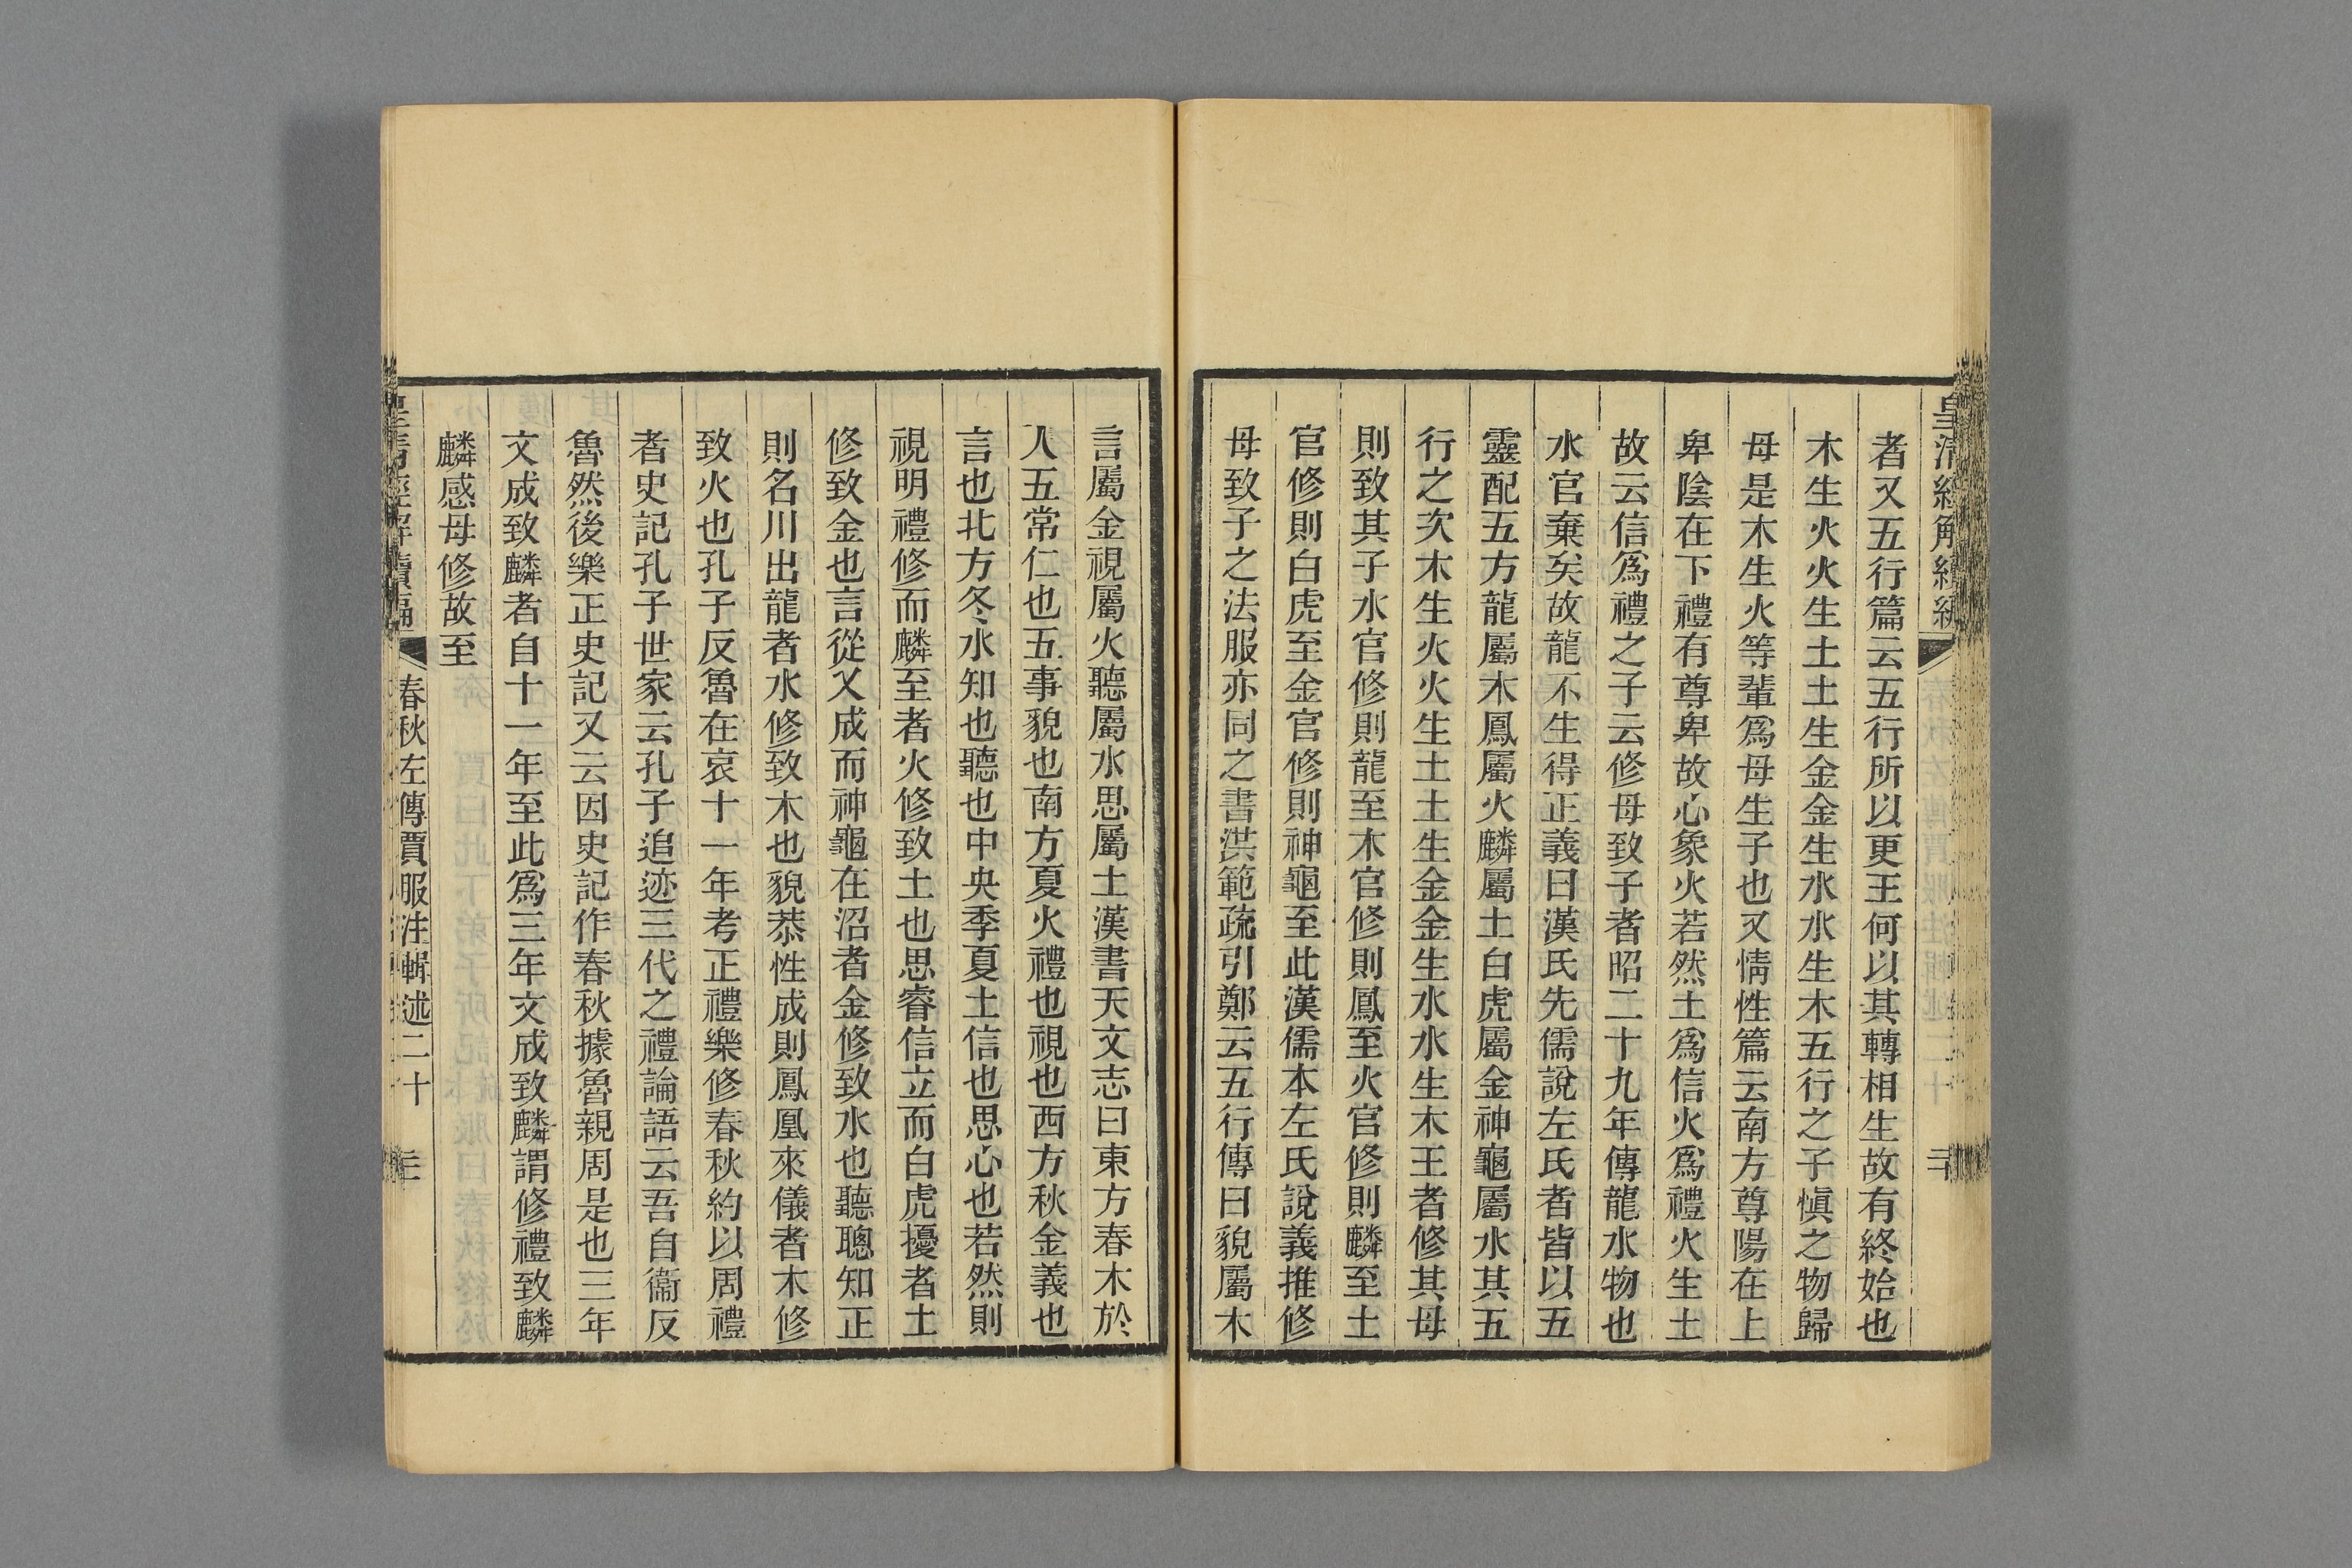 皇清經解續編
者又五行篇云五行所以更王何以其轉相生故有終始也
木生火火生土土生金金生水水生木五行之子慎之物歸
母是木生火等輩爲母生子也又情性篇云南方尊陽在上
卑陰在下禮有尊卑故心象火若然土爲信火爲禮火生土
故云信爲禮之子云修母致子者昭二十九年傳龍水物也
水官棄矣故龍不生得正義曰漢氏先儒說左氏者皆以五
靈配五方龍屬木鳳屬火麟屬土白虎屬金神龜屬水其五
行之次木生火火生土土生金金生水水生木王者修其母
則致其子水官修則龍至木官修則鳳至火官修則麟至土
官修則白虎至金官修則神龜至此漢儒本左氏說義推修
母致子之法服亦同之書洪範疏引鄭云五行傳曰貌屬木
言屬金視屬火聽屬水思屬土漢書天文志曰東方春木於
人五常仁也五事貌也南方夏火禮也視也西方秋金義也
言也北方冬水知也聽也中央季夏土信也思心也若然則
視明禮修而麟至者火修致土也思睿信立而白虎擾者土
修致金也言從乂成而神龜在沼者金修致水也聽聰知正
則名川出龍者水修致木也貌恭性成則鳳凰來儀者木修
致火也孔子反魯在哀十一年考正禮樂修春秋約以周禮
者史記孔子世家云孔子追迹三代之禮論語云吾自衞反
魯然後樂正史記又云因史記作春秋據魯親周是也三年
文成致麟者自十一年至此爲三年文成致麟謂修禮致麟
麟感母修故至
皇清經解續編 春秋左傳賈服注輯述二十